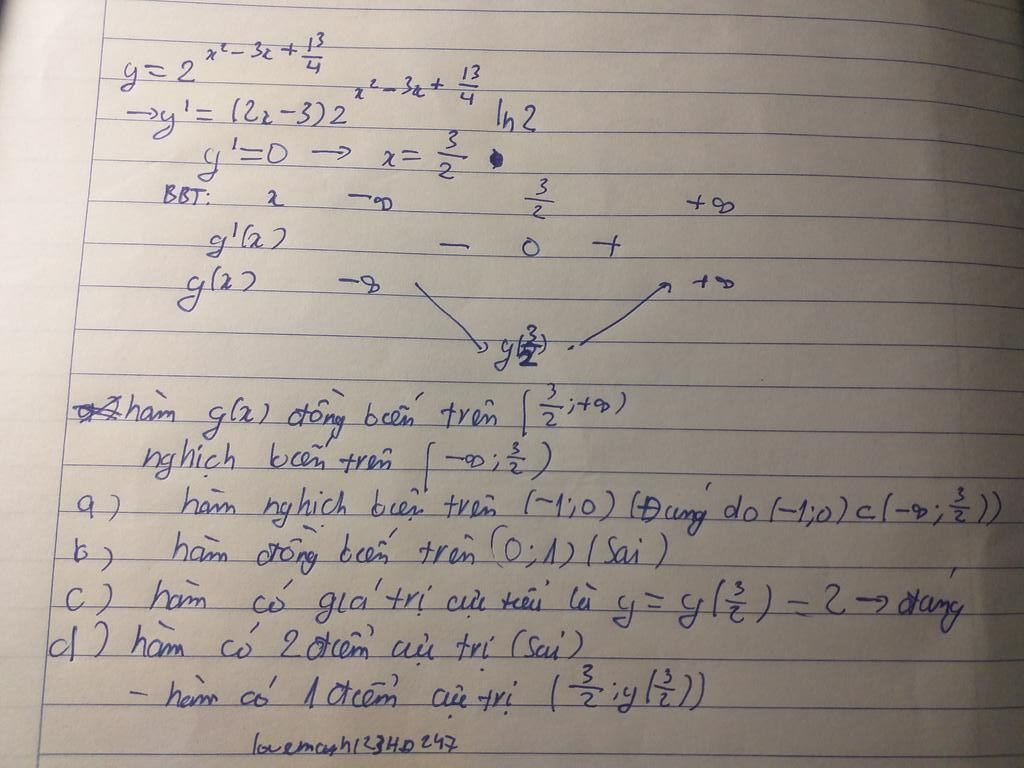 y = 2^{x² - 3x + 13/4}
→ y' = (2x - 3) 2^{x² - 3x + 13/4} ln 2
y' = 0 → x = 3/2
BBT: x -∞ 3/2 +∞
y'(x) - 0 +
y(x) -∞ ↘ y(3/2) ↗ +∞
hàm y(x) đồng biến trên (3/2; +∞)
nghịch biến trên (-∞; 3/2)
a) hàm nghịch biến trên (-1; 0) (Đúng do (-1; 0) ⊂ (-∞; 3/2))
b) hàm đồng biến trên (0; 1) (Sai)
c) hàm có giá trị cực tiểu là y = y(3/2) = 2 → đúng
d) hàm có 2 điểm cực trị (Sai)
- hàm có 1 điểm cực trị (3/2; y(3/2))